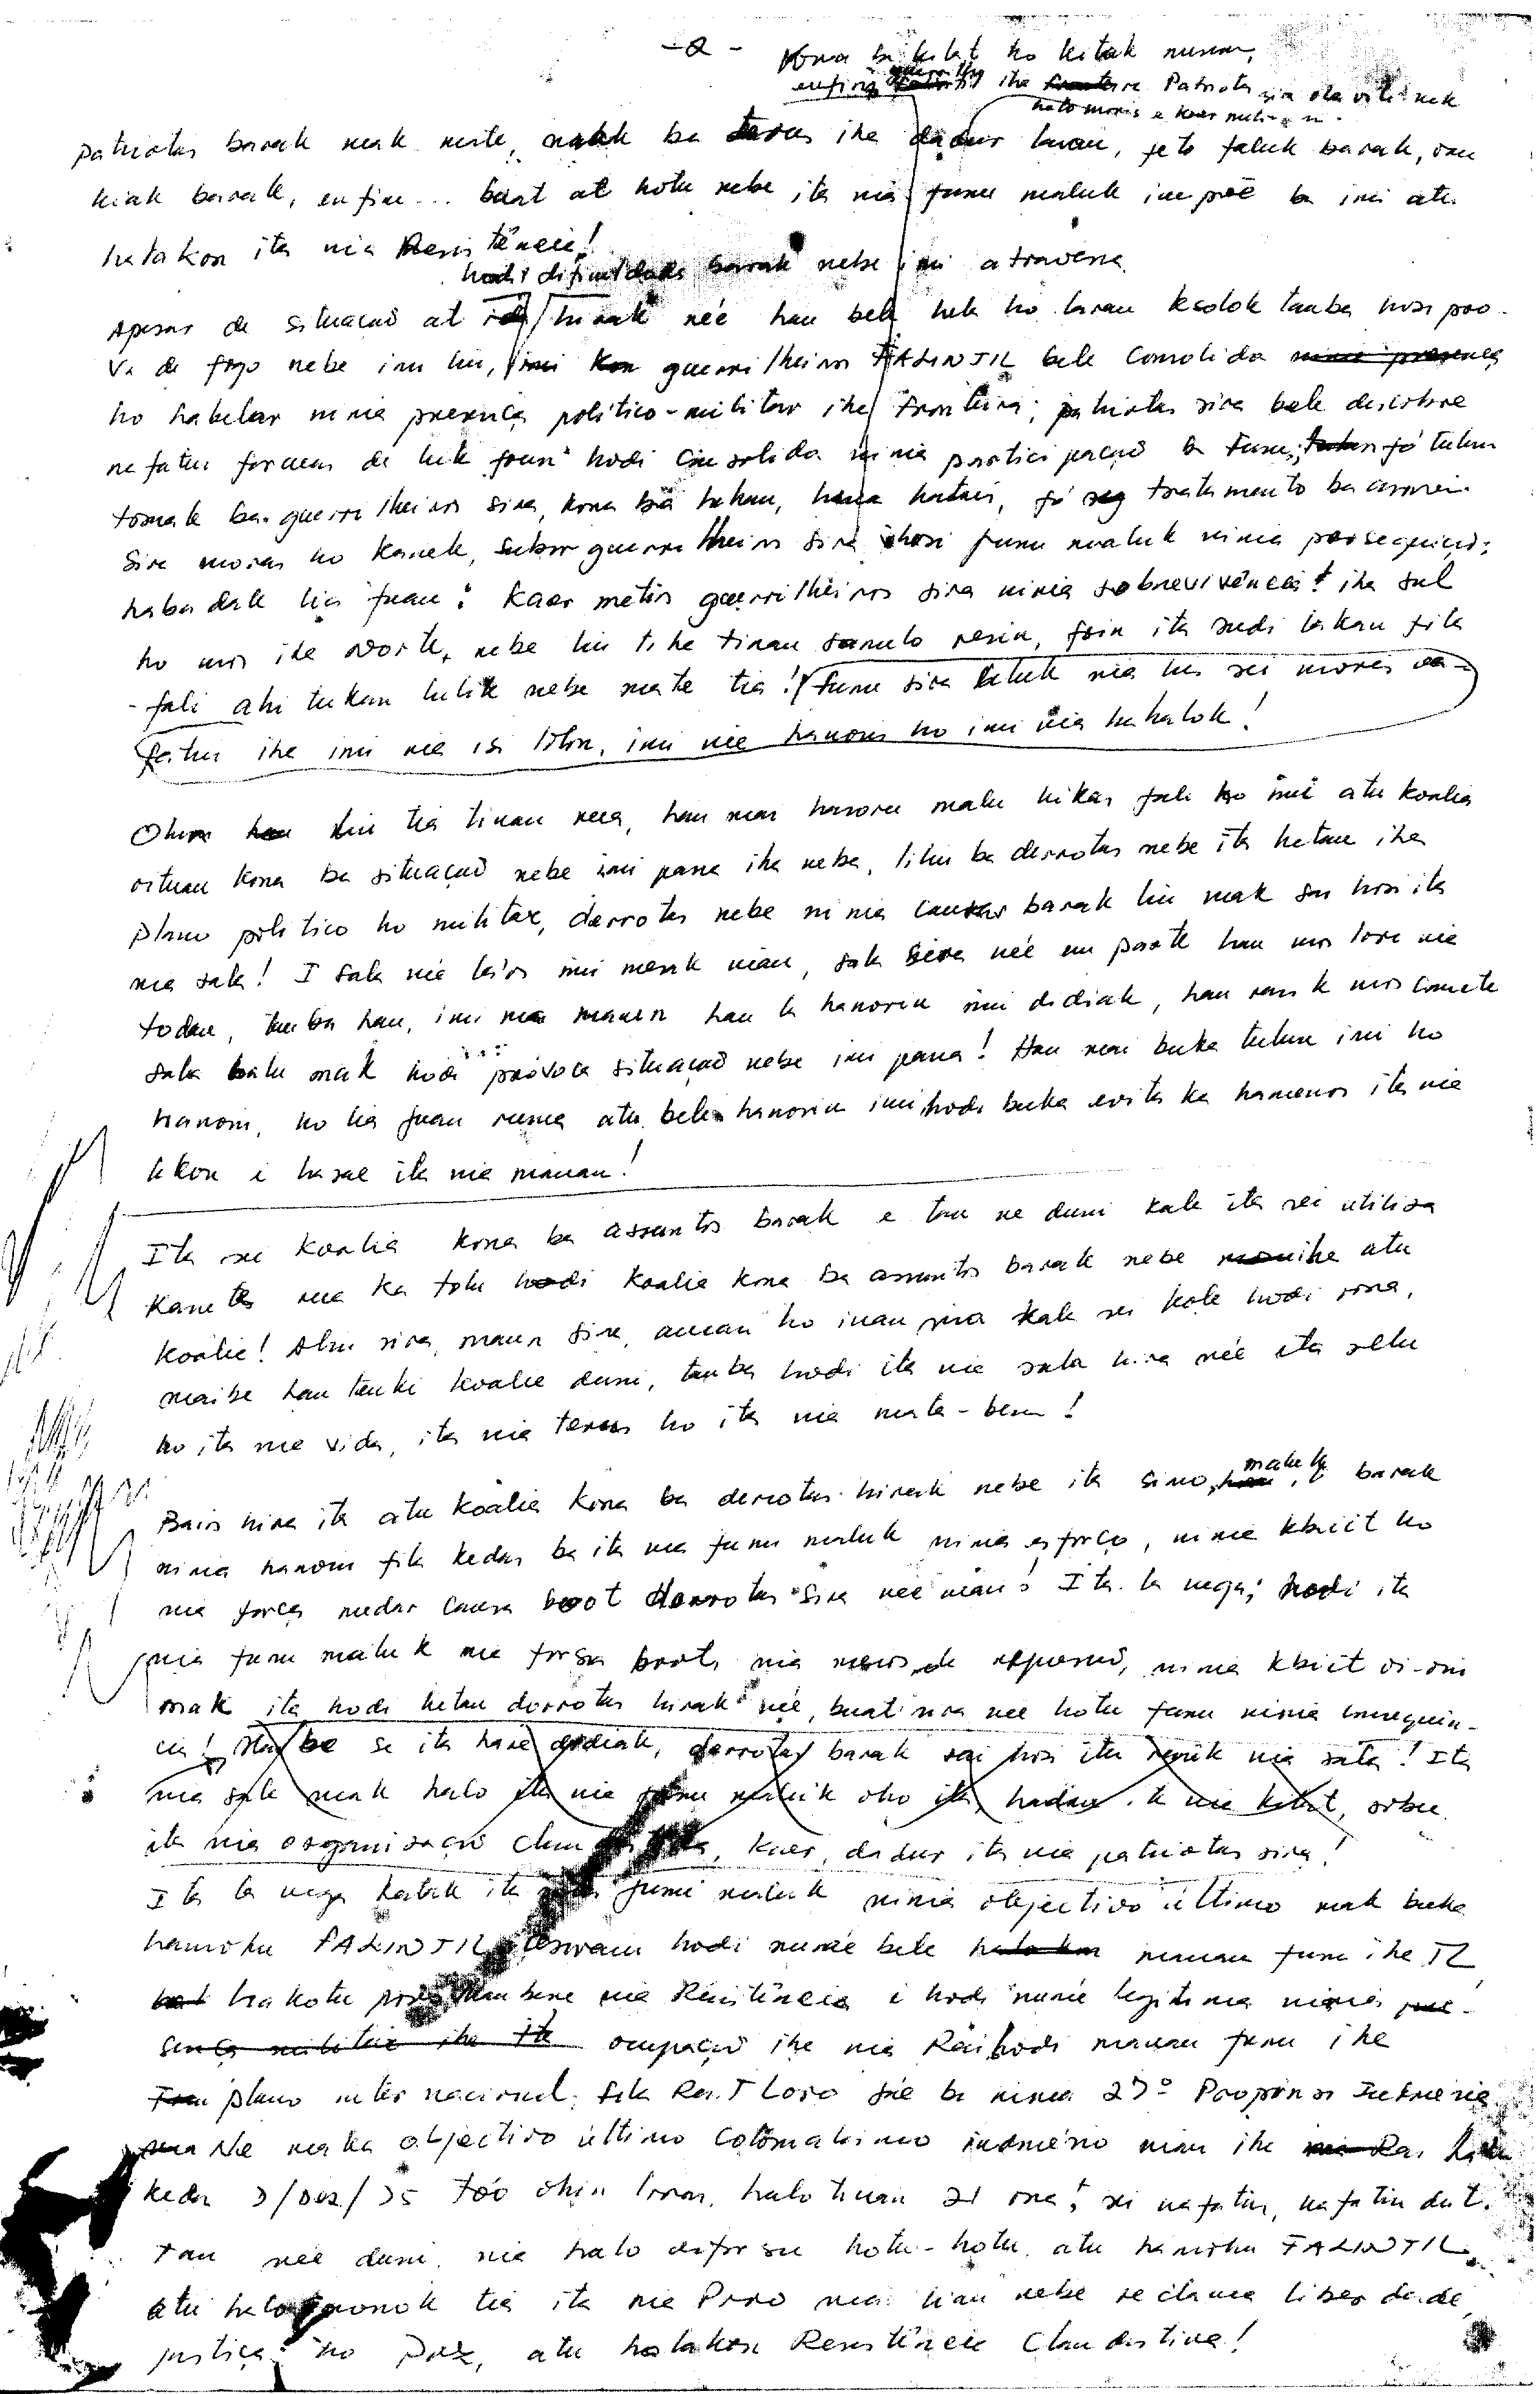 -2-
kona ba kilat ho kilat musan,
enfim guerrilha iha Patriotas sira ola vila nek
hato moris e kaer metin ni
patriotas barak mak mate, mak ba tarus iha dadur laran, feto faluk barak, oan
kiak barak, enfim... buat at hotu nebe ita nia funu maluk impoe ba imi atu
halakon ita nia Resistência!
hodi dificuldades barak nebe imi atravessa
Apesar de situação at hirak né'e hau bele hela ho laran ksolok tanba hosi pro-
va de fogo nebe imi liu, guerrilheiros FALINTIL bele Consolida
ho habelar ninia presença politico-militar iha Fronteira; patriotas sira bele descobre
nafatin formas de luta foun hodi Consolida ninia participação ba Funu, fó tulun
tomak ba guerrilheiros sira, kona ba hahan, hatais, fó tratamento ba
sira moras ho kanek, subar guerrilheiros sira hosi funu maluk ninia perseguição;
habadak lia fuan: kaer metin guerrilheiros sira ninia sobrevivência! iha sul
ho mos iha Norte, nebe liu tiha tinan sanulo resin, foin ita sudi lakan fila
-fali ahi tukan lulik nebe mate tia! Funu sira katuk nia lus sei moris na-
fatin iha imi nia isi lolon, imi nia hanoin ho imi nia hahalok!
Ohin liu tia tinan rua, hau mai hasoru malu hikas fali ho imi atu koalia
oituan kona ba situação nebe imi pasa iha neba, liliu ba derrotas nebe ita hetan iha
plano politico ho militar, derrotas nebe ninia causas barak liu mak sai hosi ita
nia sala! I sala nia la'os imi mesak nian, sala sira né'e em parte hau mos lori nia
todan, tanba hau, imi nia maun hau la hanorin imi didiak, hau rasik mos comete
sala balu mak hodi provoca situação nebe imi pasa! Hau mai buka tulun imi ho
hanoin, ho lia fuan ruma atu bele hanorin imi hodi buka evita ka hamenos ita nia
lakon i hasae ita nia manan!
Ita sei koalia kona ba assuntos barak e tan ne duni kala ita sei utiliza
kasetes rua ka tolu hodi koalia kona ba assuntos barak nebe iha atu
koalia! Alin sira, maun sira, aman ho inan sira kala sei kole hodi rona,
maibe hau tenki koalia duni, tanba hodi ita nia sala hira né'e ita selu
ho ita nia vida, ita nia terus ho ita nia mata-been!
Bain hira ita atu koalia kona ba derrotas hirak nebe ita simo, maluk barak
ninia hanoin fila kedas ba ita nia funu maluk ninia esforço, ninia kbiit ho
nia força nudar causa boot derrotas sira né'e nian! Ita la nega; hodi ita
nia funu maluk nia forsa boot, nia meios de repressão, ninia kbiit oi-oin
mak ita hodi hetan derrotas hirak né'e, buat sira nee hotu funu ninia consequên-
cia! Maibe se ita haré didiak, derrotas barak sai hosi ita rasik nia sala! Ita
nia sala mak halo ita nia funu maluk oho ita, hadau ita nia kilat, sobu
ita nia organização Clandestina, kaer, dadur ita nia patriotas sira!
Ita la nega katak ita nia funu maluk ninia objectivo último mak buka
hamohu FALINTIL hodi nunée bele manan funu iha TL,
hakotu povo Maubere nia Resistência i hodi nunée legitima ninia
ocupação iha nia Rai hodi manan funu iha
plano internacional, fila Rai T. Loro Sa'e ba ninia 27º Província Indonesia.
Ne maka objectivo último colonialismo indonésio nian iha hahu
kedas 7/Dez/75 to'o ohin loron, halo tinan 21 ona, sei nafatin, nafatin deit.
Tan née duni, nia halo esforsu hotu-hotu, atu hamohu FALINTIL,
atu halo nonok tia ita nia Povo nia lian nebe reclama liberdade,
justiça ho Paz, atu halakon Resistência Clandestina!